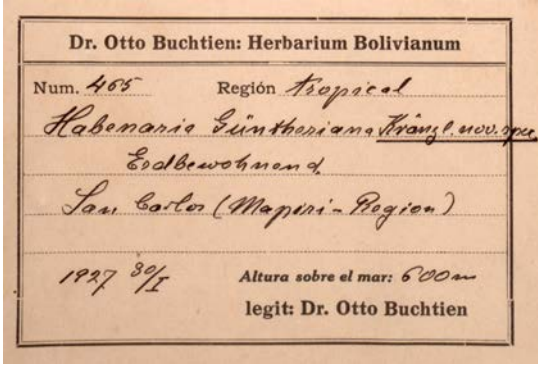 Dr. Otto Buchtien: Herbarium Bolivianum
Num. 465 Región tropical
Habenaria Güntheriana Kränzl. nov. spec.
Erdbewohnend,
San Carlos (Mapiri-Region)
1927 30/I Altura sobre el mar: 600m
legit: Dr. Otto Buchtien